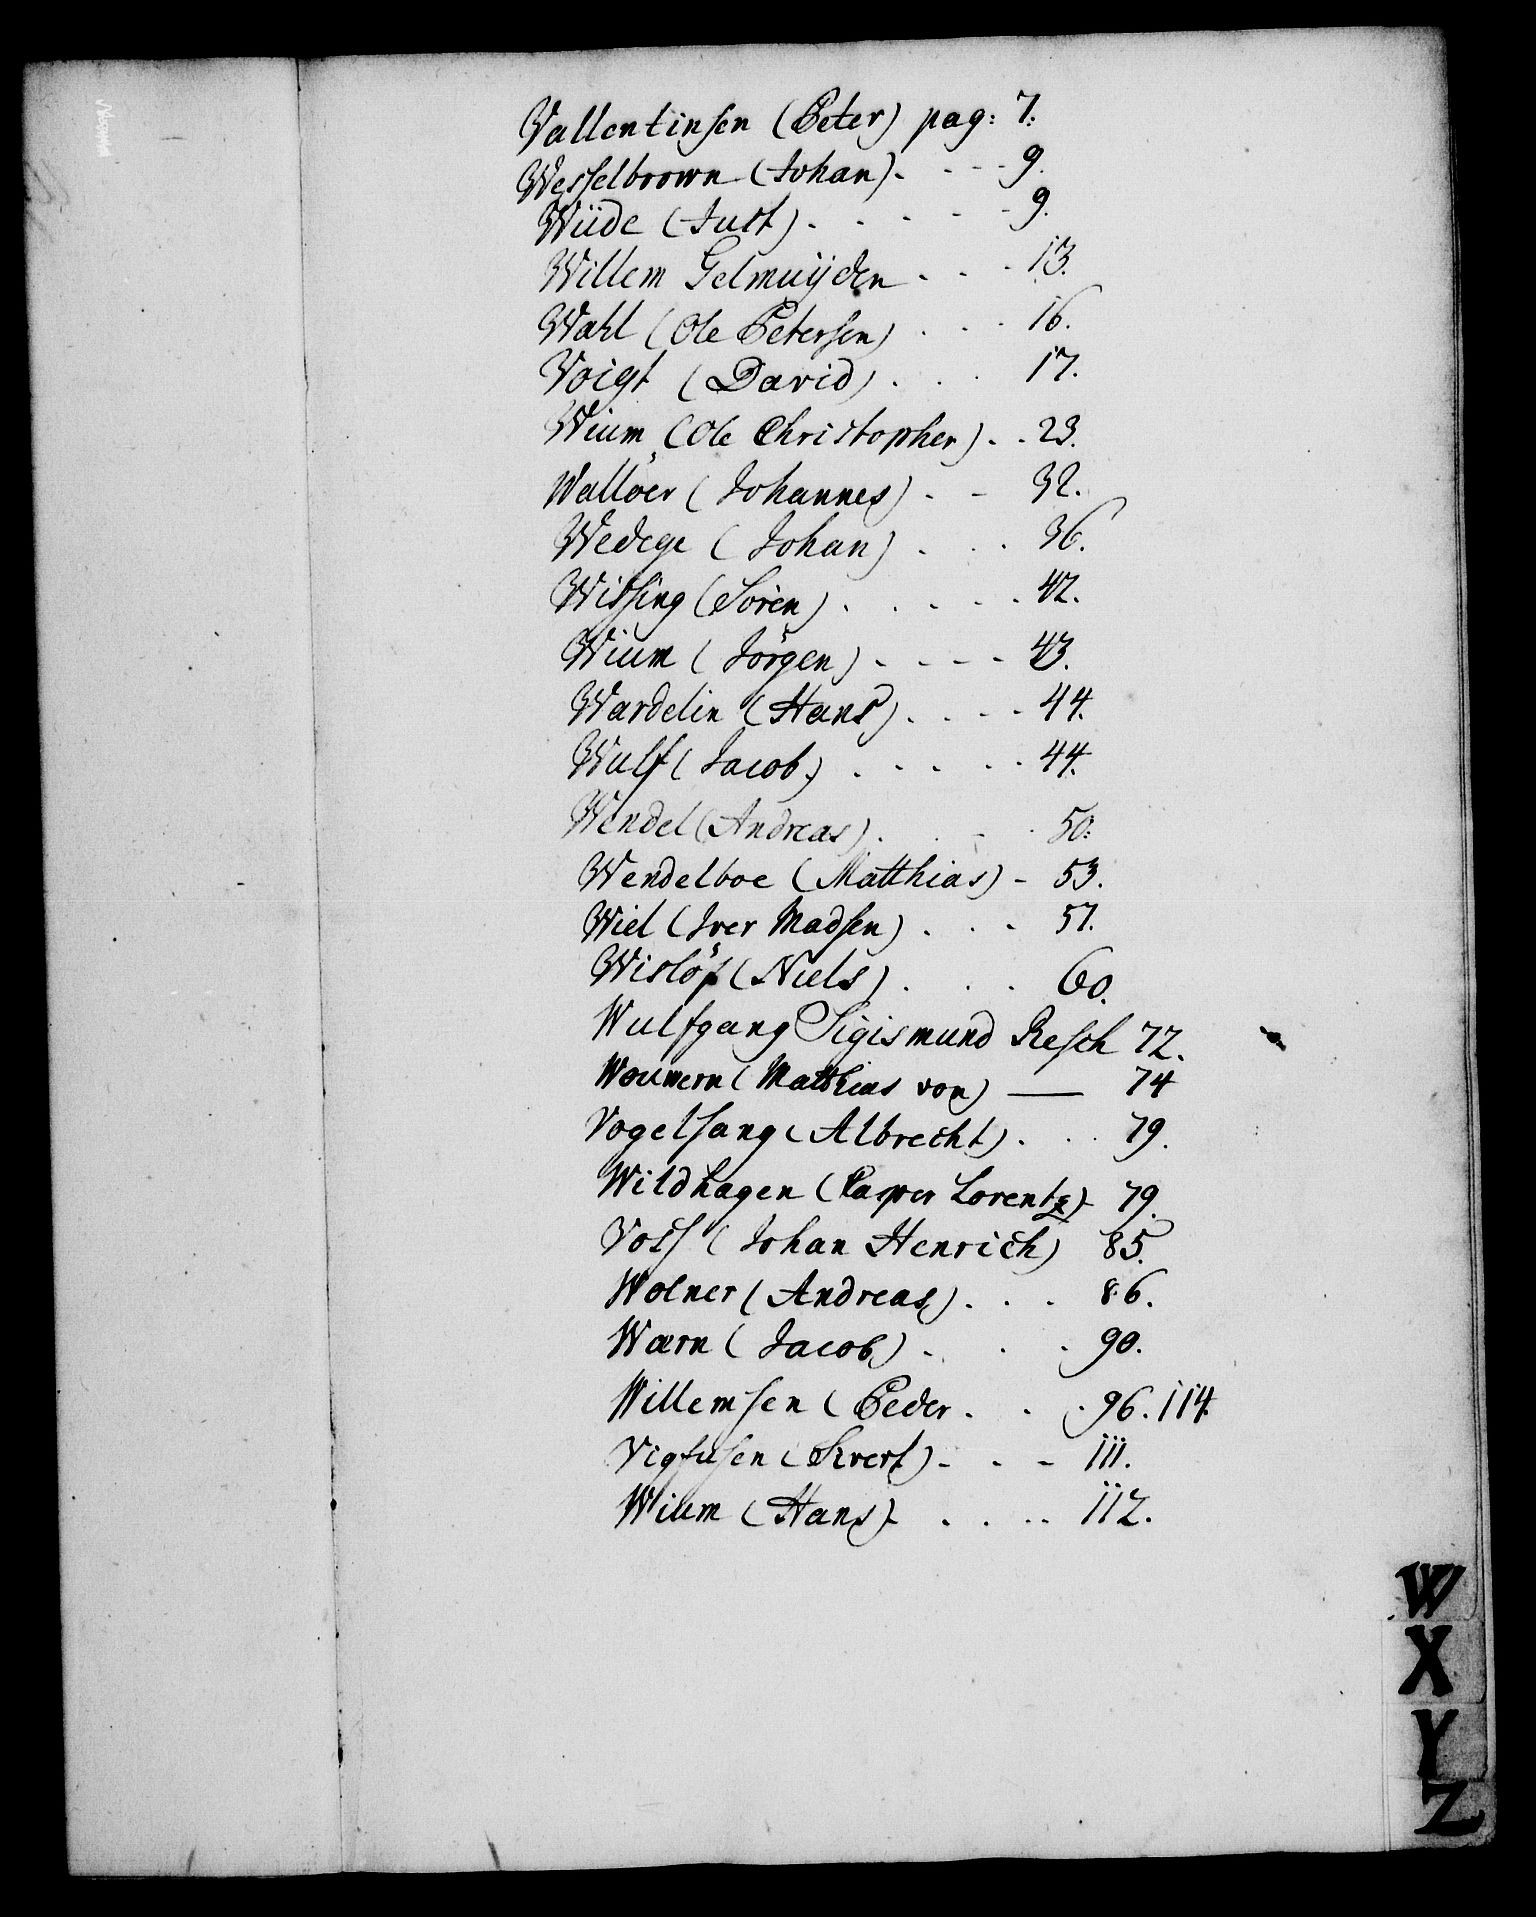 Vallentinsen (Peter) pag: 7.
Wesselbrown (Johan). - - - 9.
Wiide (Just). - - - - - 9.
Willem Gelmuijden - - - 13.
Wahl (Ole Petersen) . . . 16.
Voigt (David) . . . 17.
Wium (Ole Christopher) . . 23.
Wallöer (Johannes) . - 32.
Wedege (Johan) . . . 36.
Wissing (Sören) . . . . . 42.
Wium (Jörgen) . - - - 43.
Wardelin (Hans) . . . . 44.
Wulf (Jacob) . . . . . 44.
Wendel (Andreas) . . - . 50.
Wendelboe (Matthias) - 53.
Wiel (Iver Madsen) . . . 57.
Wislöf (Niels) . . . 60.
Wulfgang Sigismund Resch 72.
Wouwern (Matthias von) — 74
Vogelsang (Albrecht) . . . 79.
Wildhagen (Casper Lorentz) - 79.
Voss (Johan Henrich) 85.
Wolner (Andreas) . . . 86.
Wærn (Jacob) . . . 90.
Willemsen (Peder . . . 96. 114.
Vigfusen (Sivert) - - - 111.
Wium (Hans) . . . . 112.
W
X
Y
Z